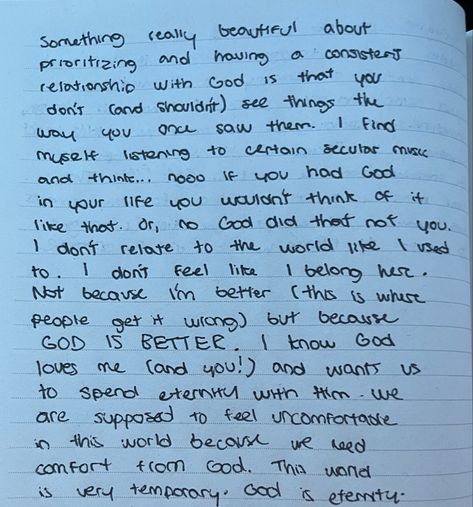 Something really beautiful about
prioritizing and having a consistent
relationship with God is that you
don't (and shouldn't) see things the
way you once saw them. I find
myself listening to certain secular music
and think... nooo if you had God
in your life you wouldn't think of it
like that. Or, no God did that not you.
I don't relate to the world like I used
to. I don't feel like I belong here.
Not because I'm better (this is where
people get it wrong) but because
GOD IS BETTER. I know God
loves me (and you!) and wants us
to spend eternity with Him. We
are supposed to feel uncomfortable
in this world because we need
comfort from God. This world
is very temporary. God is eternity.